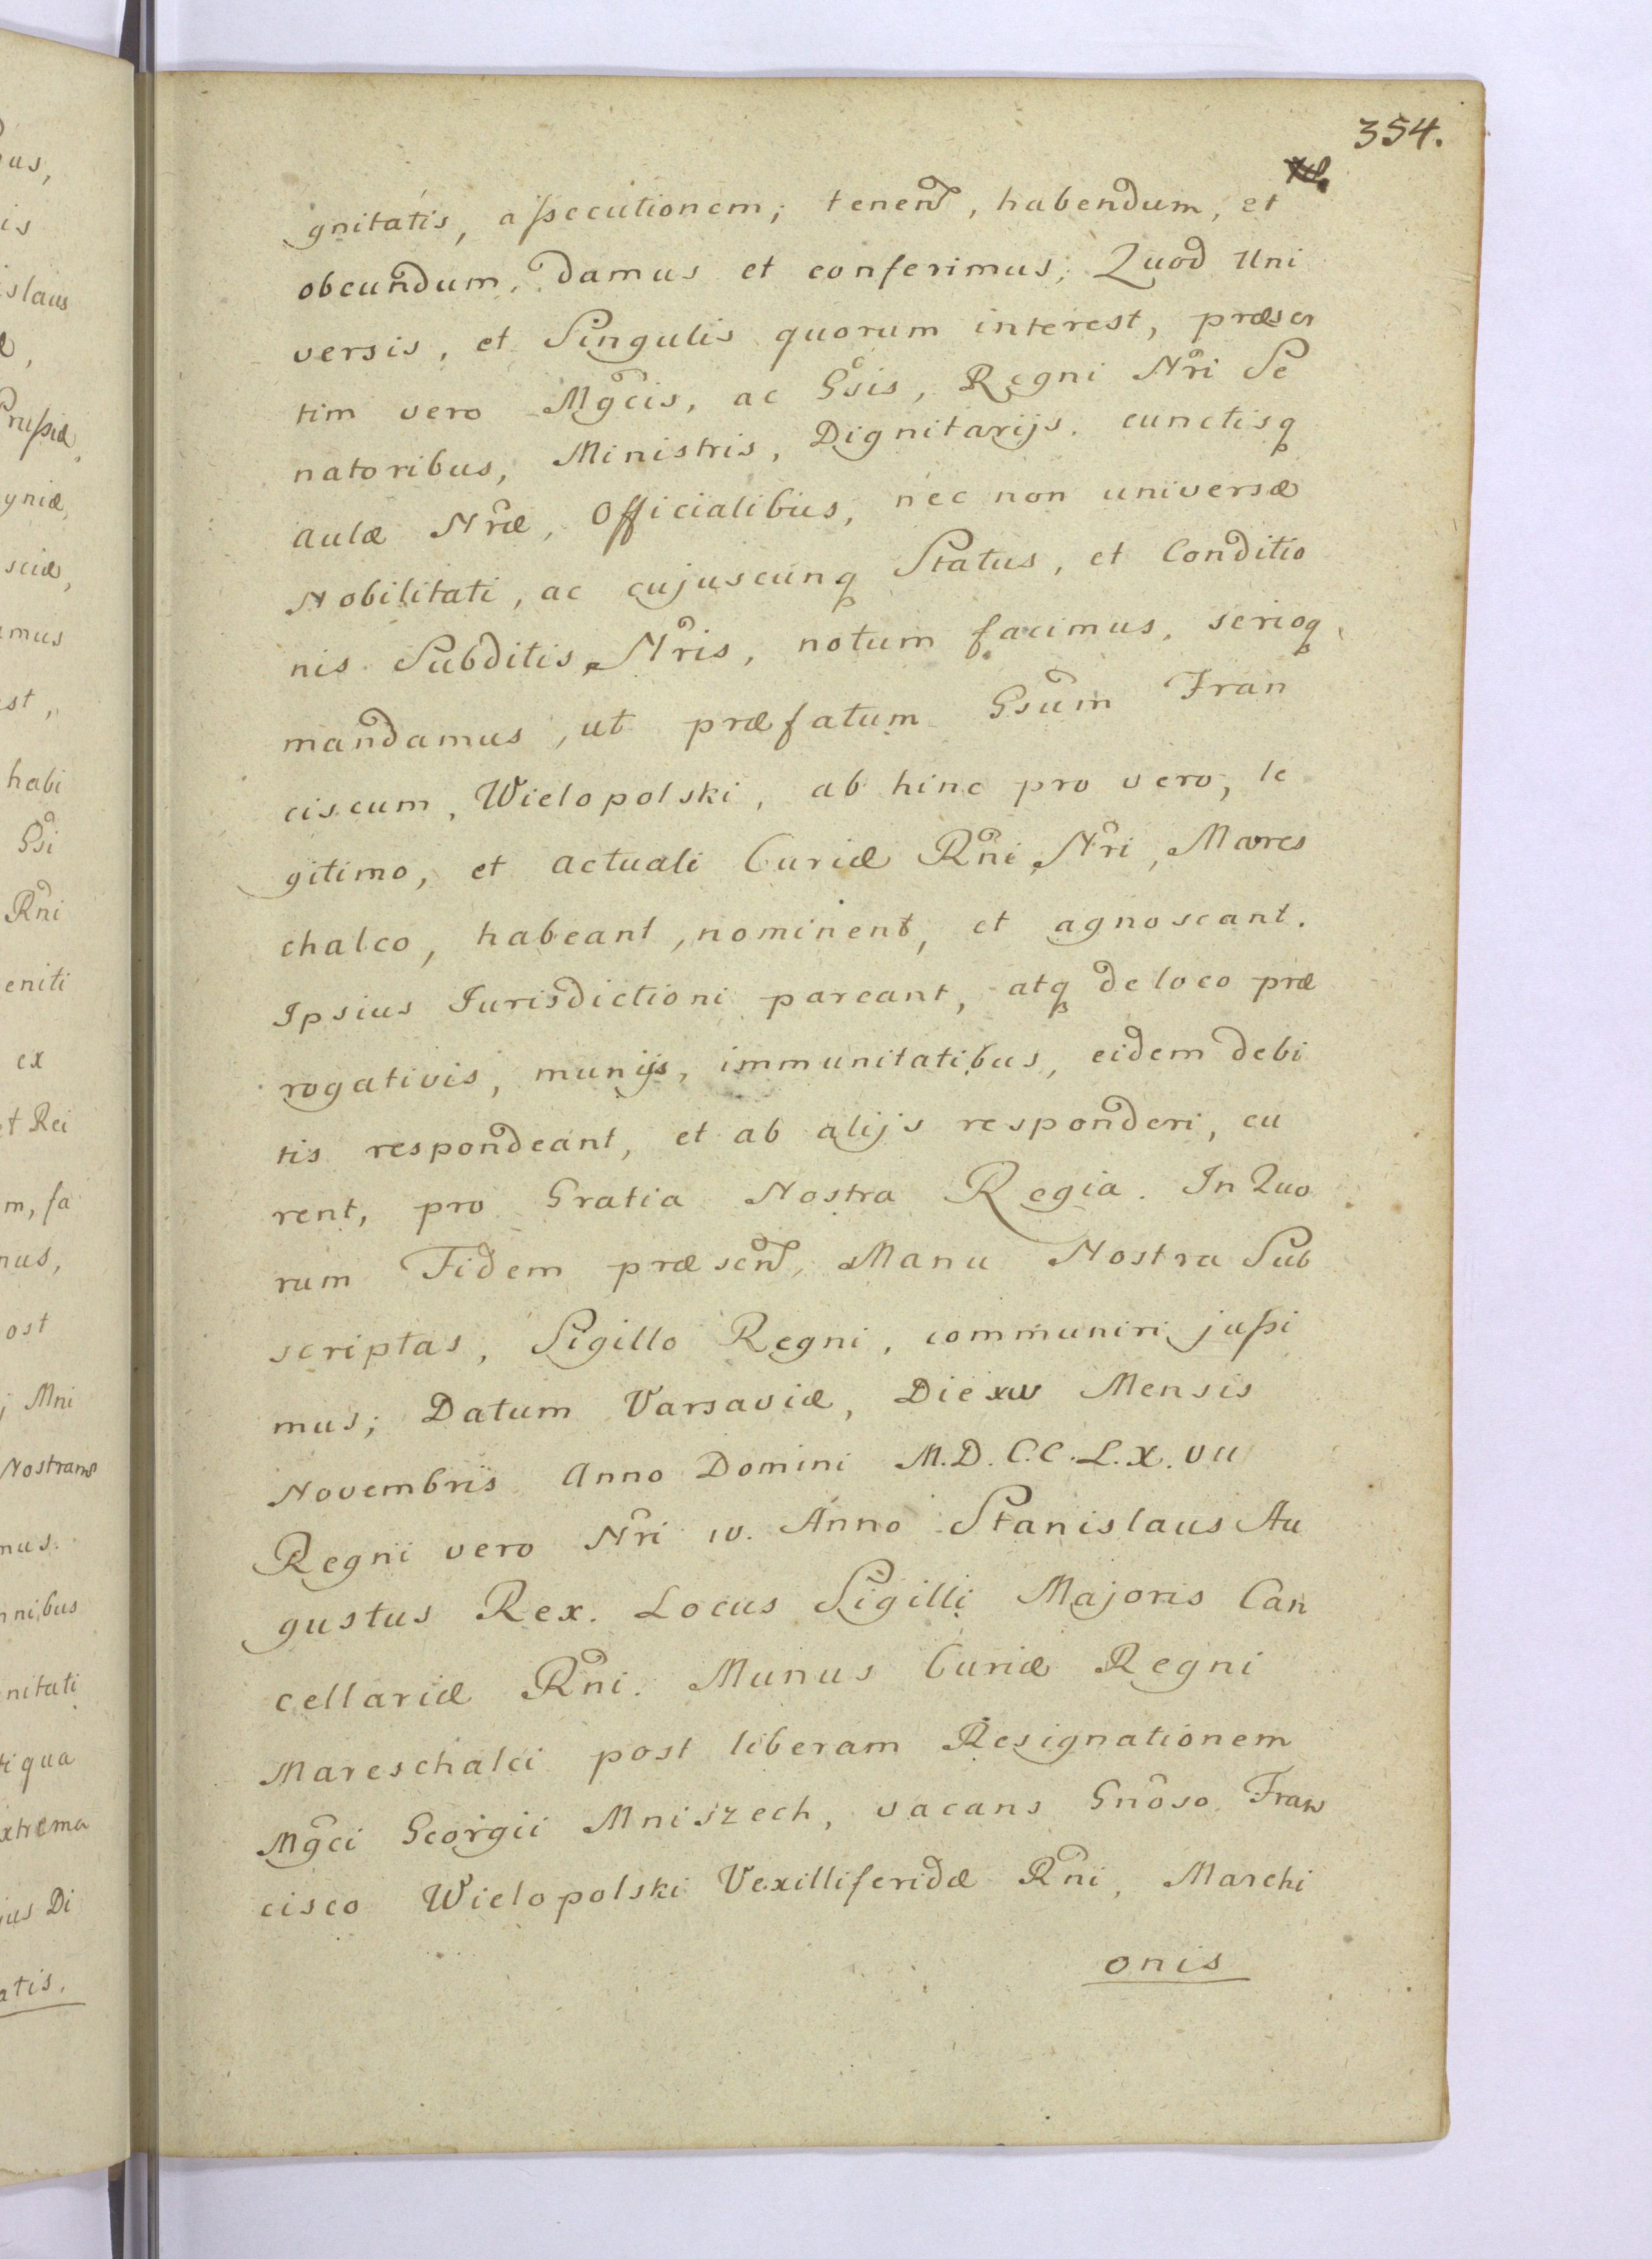 354.
gnitatis, assecutionem; tenend, habendum, et
obeundum, damus et conferimus; Quod Uni
versis, et Singulis quorum interest, præser
tim vero Mgcis, ac Gsis, Regni Nri Se
natoribus, Ministris, Dignitarijs. cunctisq
aulæ Nræ, Officialibus, nec non universæ
Nobilitati, ac cujuscunq Status, et Conditio
nis Subditis Nris, notum facimus, serioq
mandamus, ut præfatum Gsum Fran
ciscum, Wielopolski, ab hinc pro vero, le
gitimo, et actuali Curiæ Rni Nri, Mares
chalco, habeant, nominent, et agnoscant.
Ipsius Jurisdictioni pareant, atq de loco præ
rogativis, munijs, immunitatibus, eidem debi
tis respondeant, et ab alijs responderi, cu
rent, pro Gratia Nostra Regia. In Quo
rum Fidem præsend, Manu Nostra Sub
scriptas, Sigillo Regni, communiri jussi
mus; Datum Varsaviæ, Die Mensis
Novembris Anno Domini M.D.C.C.L.X.VII
Regni vero Nri IV. Anno Stanislaus Au
gustus Rex. Locus Sigilli Majoris Can
cellariæ Rni. Munus Curiæ Regni
Mareschalci post liberam Resignationem
Mgci Georgii Mniszech, vacans Gnoso Fran
cisco Wielopolski Vexilliferidæ Rni, Marchi
onis